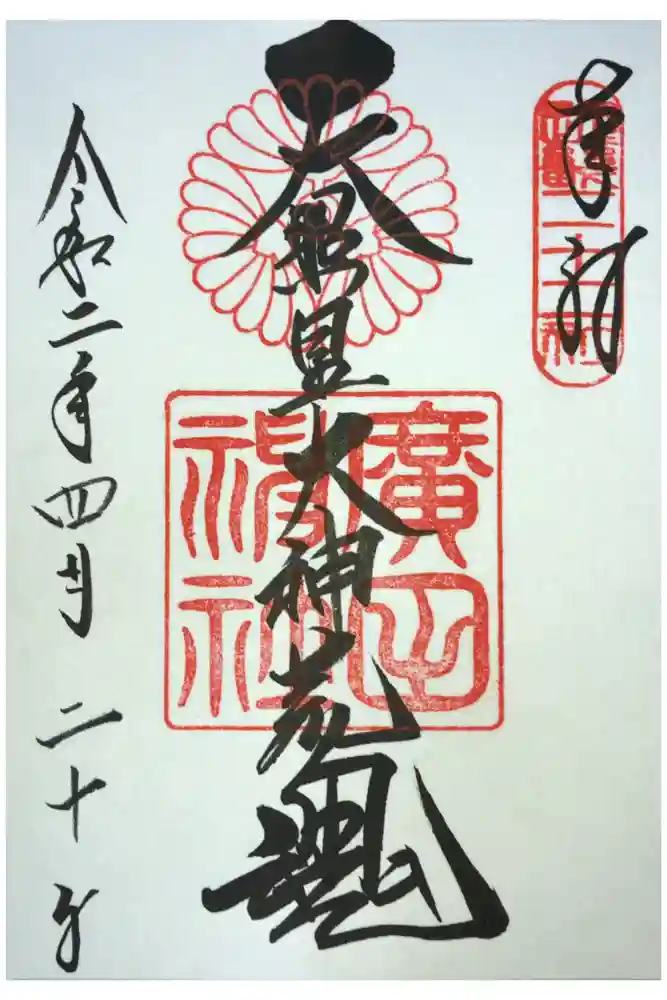 奉拝
二十二社
天照皇大神荒魂
廣田
神社
令和二年四月二十日